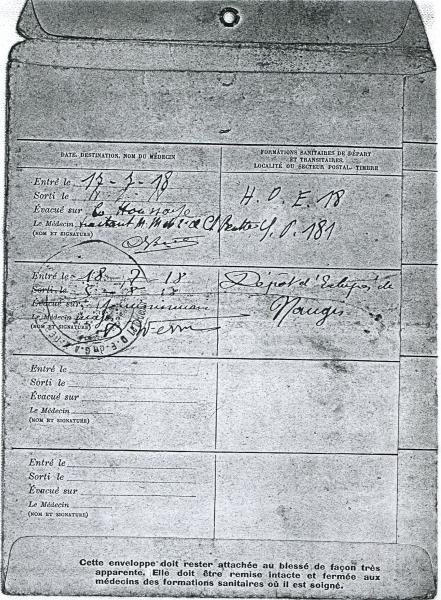 DATE, DESTINATION, NOM DU MÉDECIN
FORMATIONS SANITAIRES DE DÉPART
ET TRANSITAIRES.
LOCALITÉ OU SECTEUR POSTAL - TIMBRE
Entré le 17-7-18
Sorti le
Évacué sur
Le Médecin traitant
(NOM ET SIGNATURE)
H. O. E. 18
S. P. 181
Entré le 18 7 18
Sorti le
Évacué sur
Le Médecin
(NOM ET SIGNATURE)
Dépôt d'Eclopés de
Nangis
Entré le
Sorti le
Évacué sur
Le Médecin
(NOM ET SIGNATURE)
Entré le
Sorti le
Évacué sur
Le Médecin
(NOM ET SIGNATURE)
Cette enveloppe doit rester attachée au blessé de façon très
apparente. Elle doit être remise intacte et fermée aux
médecins des formations sanitaires où il est soigné.